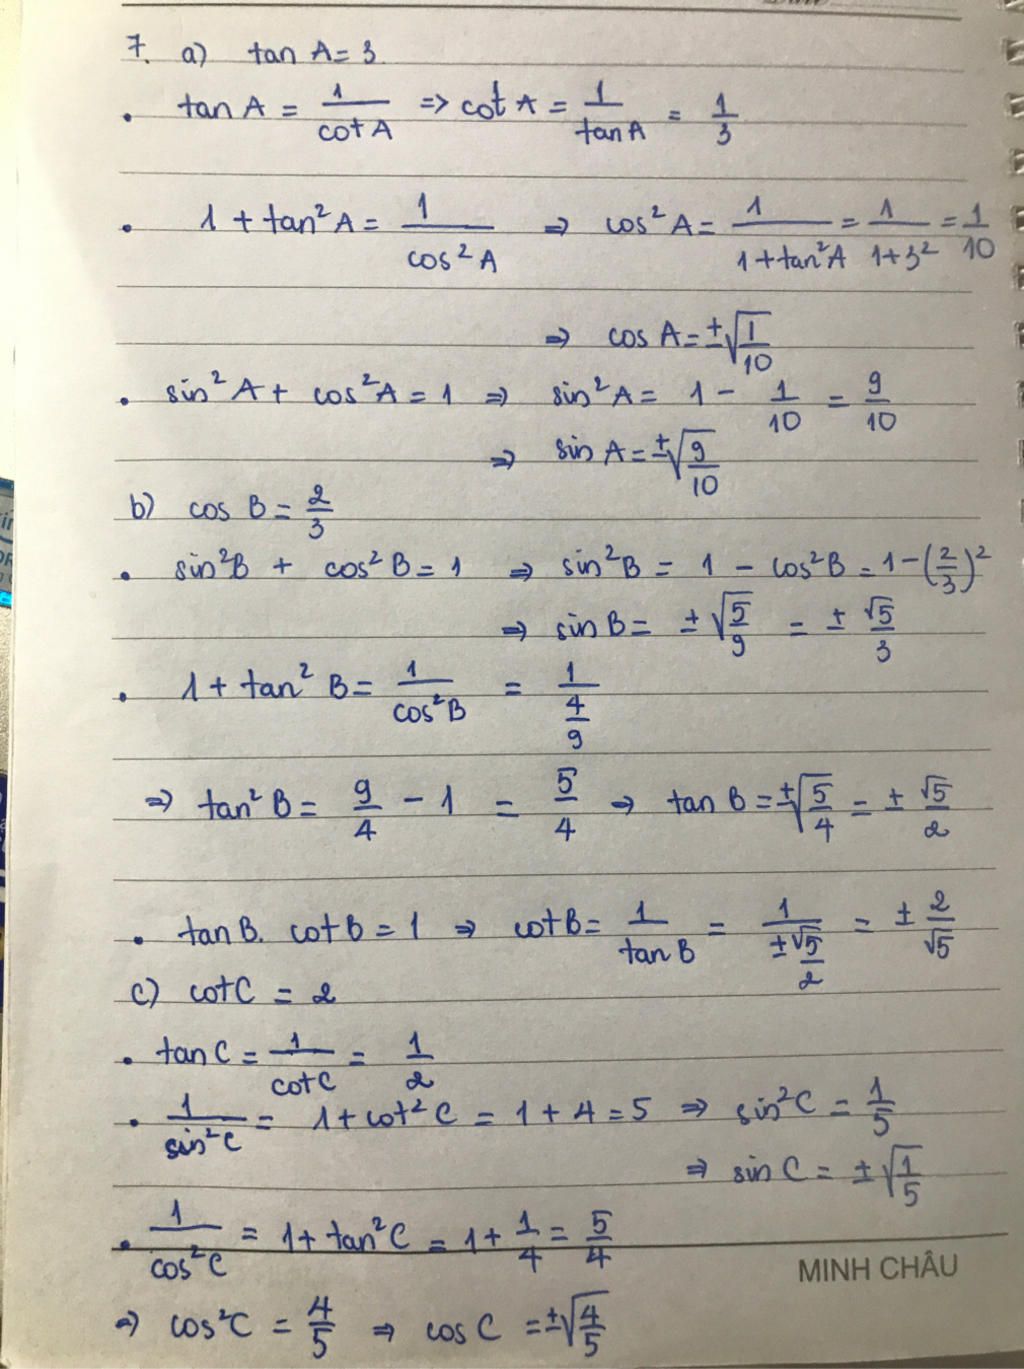 7. a) tan A = 3
• tan A = 1/cot A => cot A = 1/tan A = 1/3
• 1 + tan² A = 1/cos² A => cos² A = 1/(1 + tan² A) = 1/(1 + 3²) = 1/10
=> cos A = ±√(1/10)
• sin² A + cos² A = 1 => sin² A = 1 - 1/10 = 9/10
=> sin A = ±√(9/10)
b) cos B = 2/3
• sin² B + cos² B = 1 => sin² B = 1 - cos² B = 1 - (2/3)²
=> sin B = ±√(5/9) = ± √5/3
• 1 + tan² B = 1/cos² B = 1/(4/9)
=> tan² B = 9/4 - 1 = 5/4 => tan B = ±√(5/4) = ± √5/2
• tan B. cot B = 1 => cot B = 1/tan B = 1/(±√5/2) = ± 2/√5
c) cot C = 2
• tan C = 1/cot C = 1/2
• 1/sin² C = 1 + cot² C = 1 + 4 = 5 => sin² C = 1/5
=> sin C = ±√(1/5)
• 1/cos² C = 1 + tan² C = 1 + 1/4 = 5/4
MINH CHÂU
=> cos² C = 4/5 => cos C = ±√(4/5)